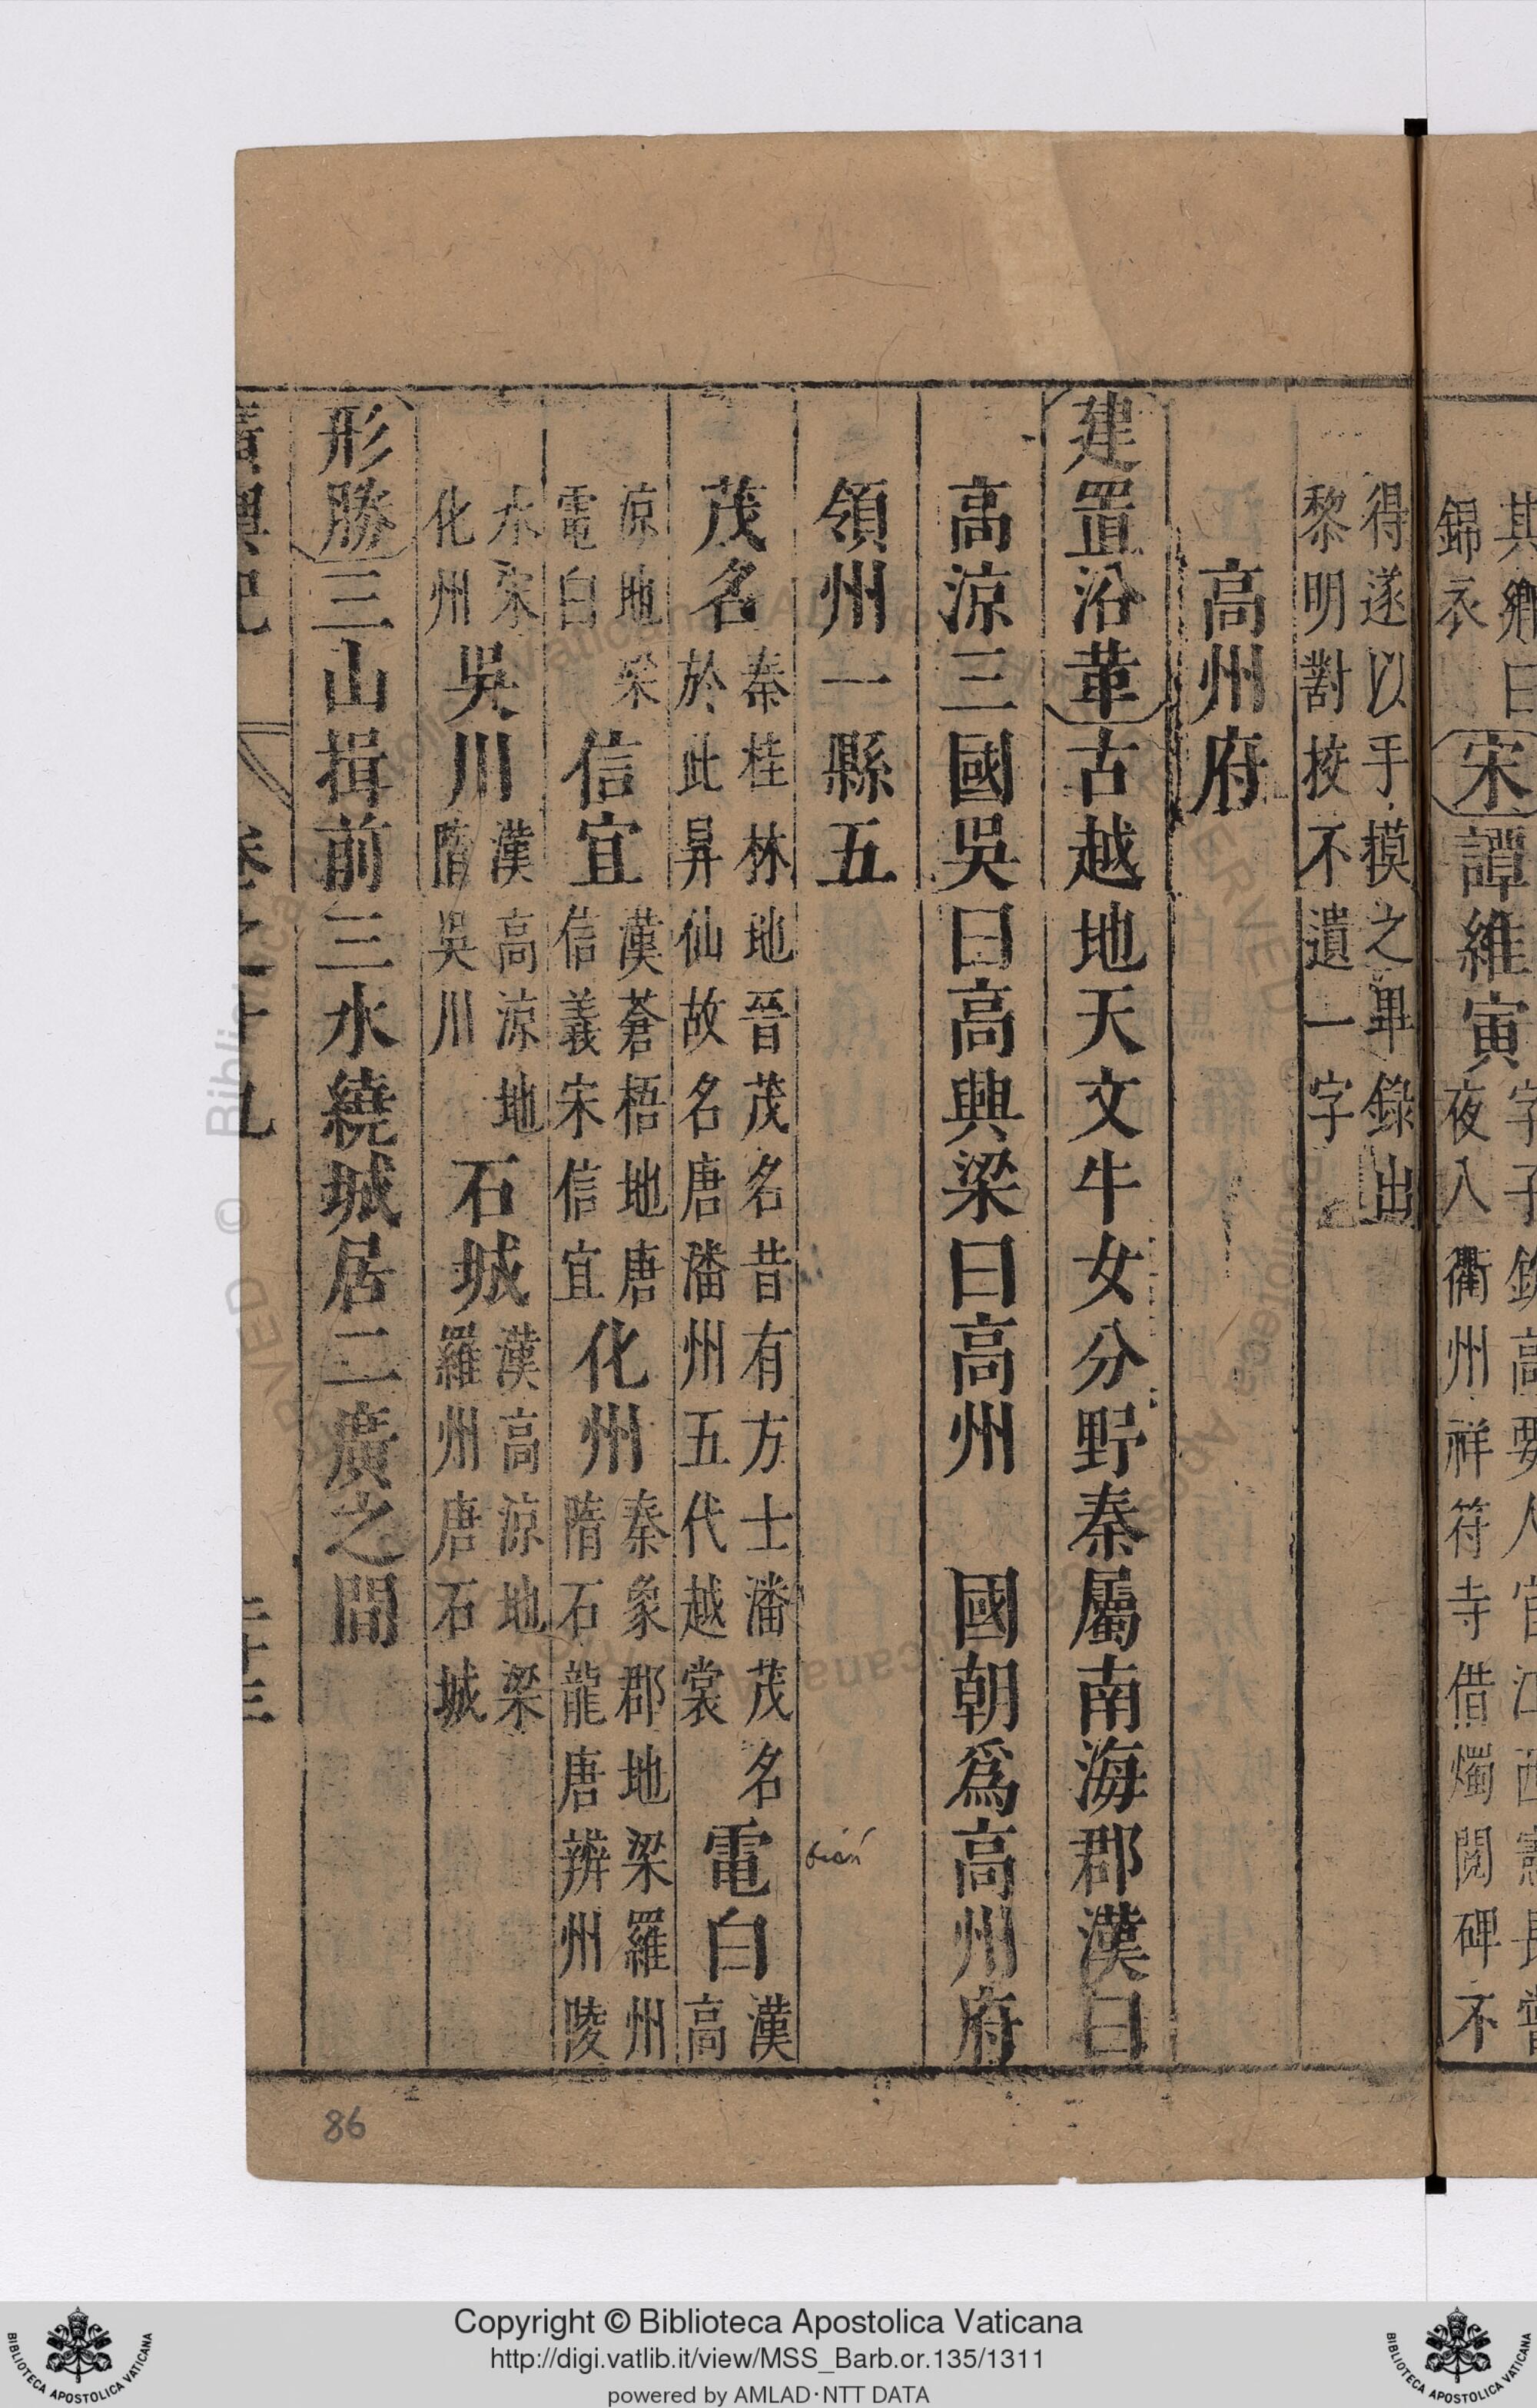 宋譚維寅
夜八衢州祥符寺借燭閱碑不
得遂以手摸之畢錄出
黎明對校不遺一字
高州府
建置沿革古越地天文牛女分野秦屬南海郡漢曰
高涼三國吳曰高興梁曰高州 國朝為高州府
領州一縣五
茂名秦桂林地晉茂名昔有方士潘茂名
於此昇仙故名唐潘州五代越裳電白漢
高
涼地梁
電白信宜漢蒼梧地唐
信義宋信宜化州秦象郡地梁羅州
隋石龍唐辨州陵
水宋
化州吳川漢高涼地
隋吳川石城漢高涼地梁
羅州唐石城
形勝三山揖前三水繞城居二廣之間
卷之十九
86
Copyright © Biblioteca Apostolica Vaticana
http://digi.vatlib.it/view/MSS_Barb.or.135/1311
powered by AMLAD·NTT DATA